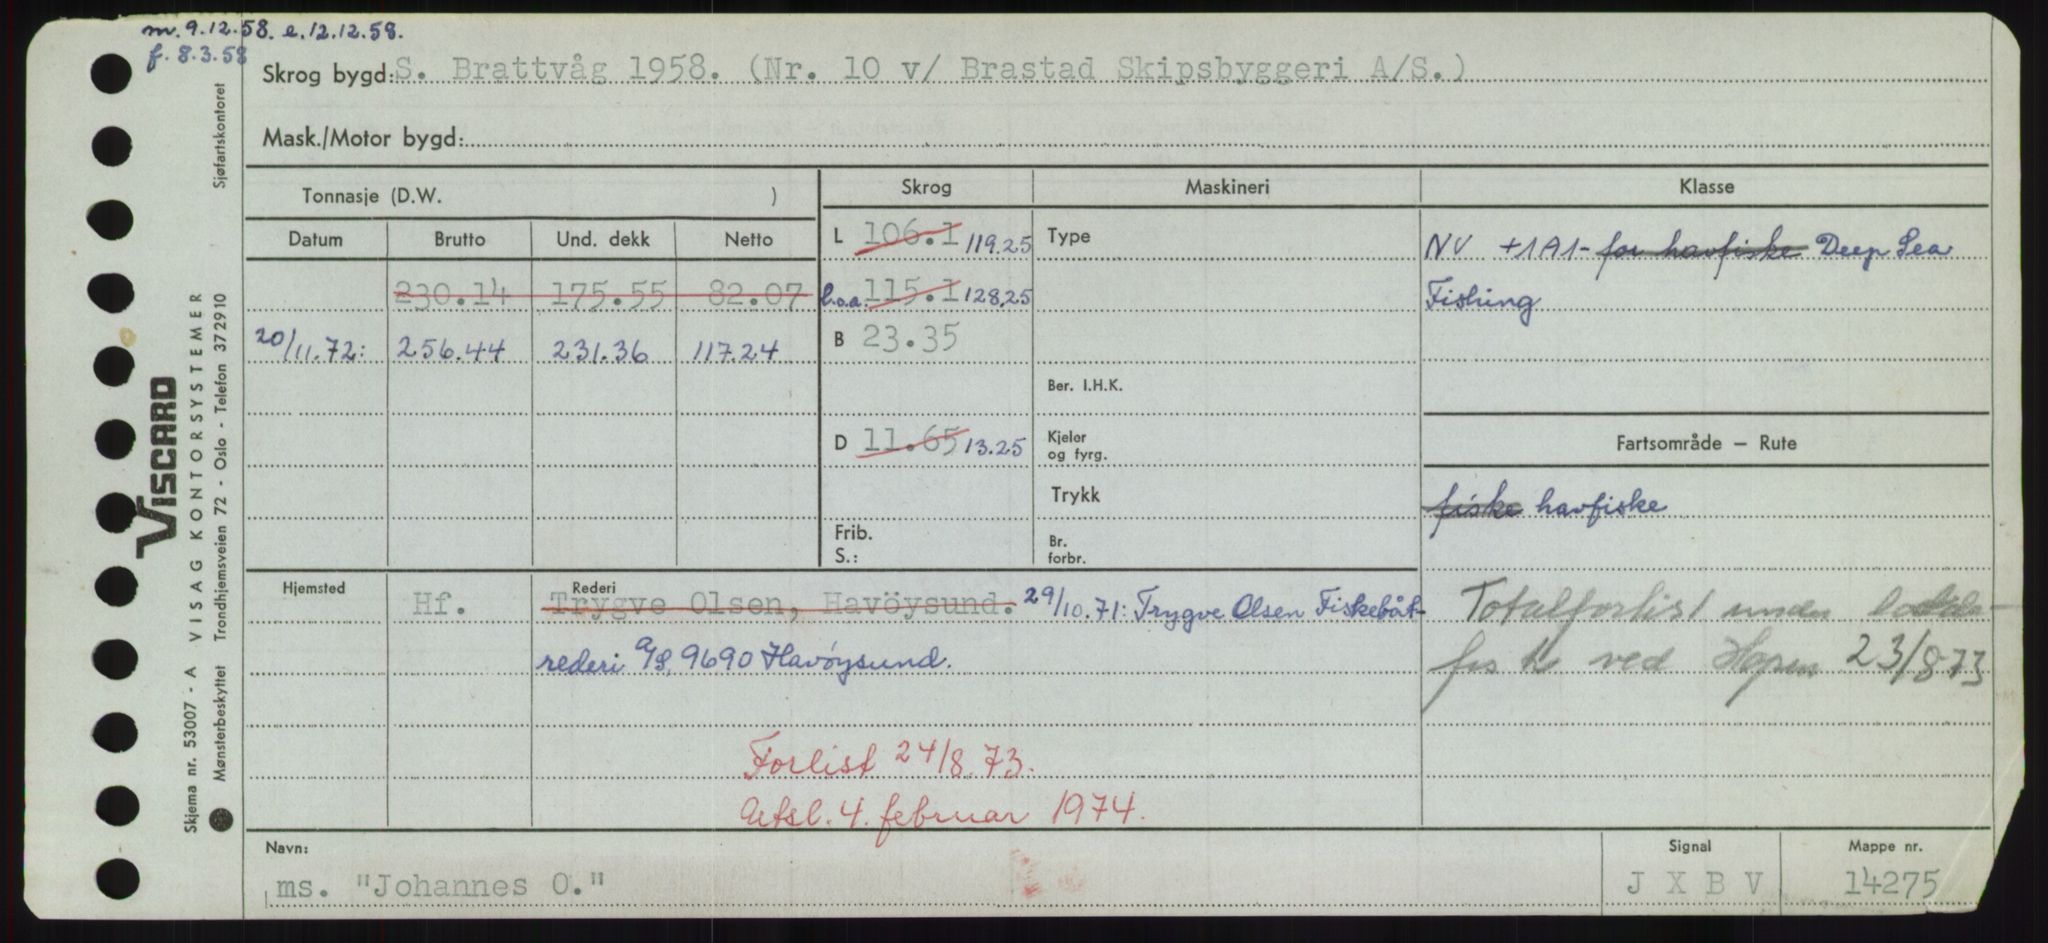 m. 9.12.58. e. 12.12.58.
f. 8.3.58
Skrog bygd: S. Brattvåg 1958. (Nr. 10 v/ Brastad Skipsbyggeri A/S.)
Mask./Motor bygd:
Tonnasje (D.W. )
Skrog Maskineri Klasse
Datum Brutto Und. dekk Netto
L 106.1 119.25 Type
NV +1A1- for havfiske Deep Sea
230.14 175.55 82.07
l.o.a. 115.1 128.25
Fishing
20/11.72: 256.44 231.36 117.24
B 23.35
Ber. I.H.K.
D 11.65 13.25 Kjeler
og fyrg.
Fartsområde – Rute
Trykk
fiske havfiske
Frib.
S.:
Br.
forbr.
Hjemsted Rederi
Hf. Trygve Olsen, Havöysund. 29/10.71: Trygve Olsen Fiskebåt-
rederi A/S, 9690 Havöysund.
Totalforlist under lodde-
fiske ved Hopen 23/8-73
Forlist 24/8.73.
Utsl. 4. februar 1974.
Navn: Signal Mappe nr.
ms. "Johannes O." J X B V 14275
Sjøfartskontoret
VISCARD
VISAG KONTORSYSTEMER
Skjema nr. 53007 - A
Mønsterbeskyttet Trondhjemsveien 72 - Oslo - Telefon 372910